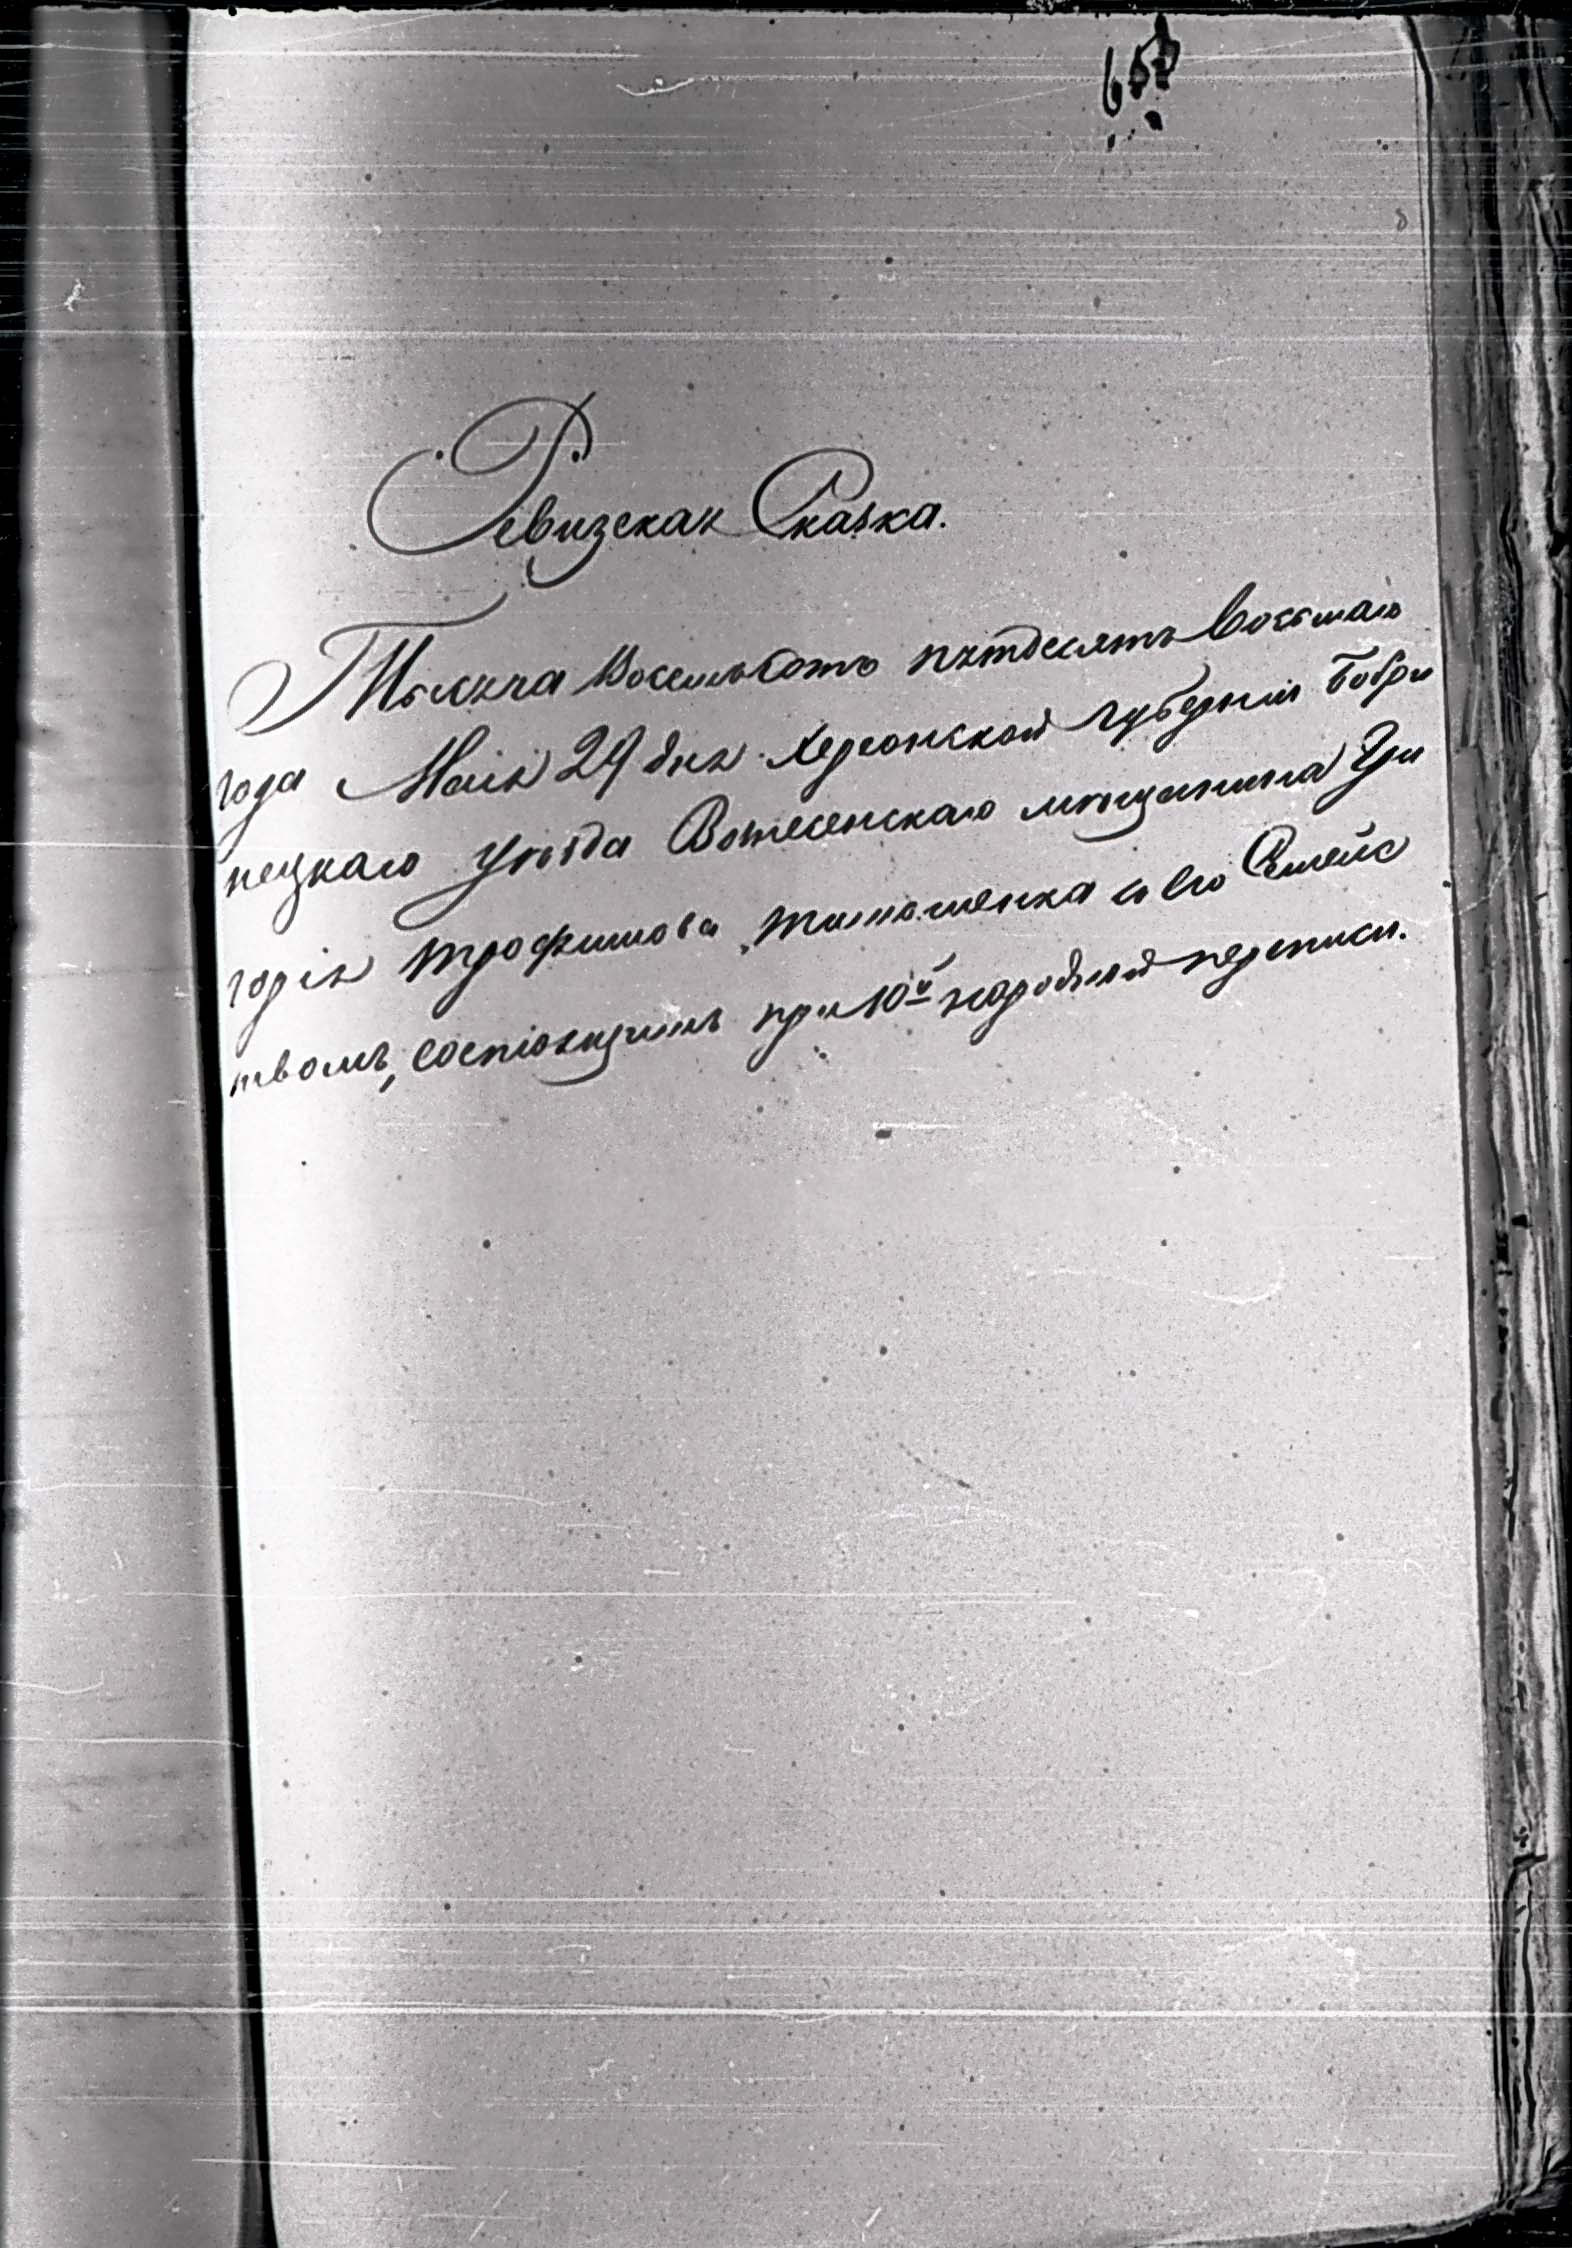 Ревизская Сказка.
Тысяча Восемьсотъ пятдесятъ Восьмаго
года Маія 29 дня Херсонской губерніи Бобри
нецкаго уѣзда Вознесенскаго мѣщанина Гри
горія Трофимова Тимошенка и его Семейс
твомъ, состоящимъ при 10й народной переписи.